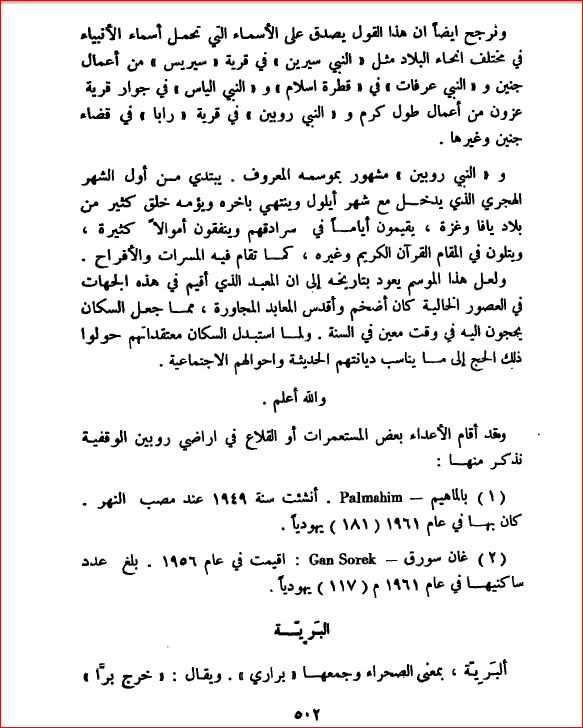 ونرجح ايضاً ان هذا القول يصدق على الأسماء التي تحمل أسماء الأنبياء
في مختلف انحاء البلاد مثل « النبي سيرين » في قرية « سيريس » من أعمال
جنين و « النبي عرفات » في « قطرة اسلام » و « النبي الياس » في جوار قرية
عزون من أعمال طول كرم و « النبي روبين » في قرية « رابا » في قضاء
جنين وغيرها .
و « النبي روبين » مشهور بموسمه المعروف . يبتدي من أول الشهر
الهجري الذي يدخل مع شهر أيلول وينتهي باخره ويؤمه خلق كثير من
بلاد يافا وغزة ، يقيمون أياماً في سرادقهم وينفقون أموالاً كثيرة ،
ويتلون في المقام القرآن الكريم وغيره ، كما تقام فيه المسرات والأفراح .
ولعل هذا الموسم يعود بتاريخه إلى ان المعبد الذي أقيم في هذه الجهات
في العصور الخالية كان أضخم وأقدس المعابد المجاورة ، مما جعل السكان
يحجون اليه في وقت معين في السنة . ولما استبدل السكان معتقداتهم حولوا
ذلك الحج إلى ما يناسب ديانتهم الحديثة واحوالهم الاجتماعية .
والله أعلم .
وقد أقام الأعداء بعض المستعمرات أو القلاع في اراضي روبين الوقفية
نذكر منها :
( ١ ) بالماهيم – Palmahim . أنشئت سنة ١٩٤٩ عند مصب النهر .
كان بها في عام ١٩٦١ ( ١٨١ ) يهودياً .
( ٢ ) غان سورق – Gan Sorek : اقيمت في عام ١٩٥٦ . بلغ عدد
ساكنيها في عام ١٩٦١ م ( ١١٧ ) يهودياً .
البَريّة
ألبَريّة ، بمعنى الصحراء وجمعها « براري » . ويقال : « خرج برًّا »
٥٠٢